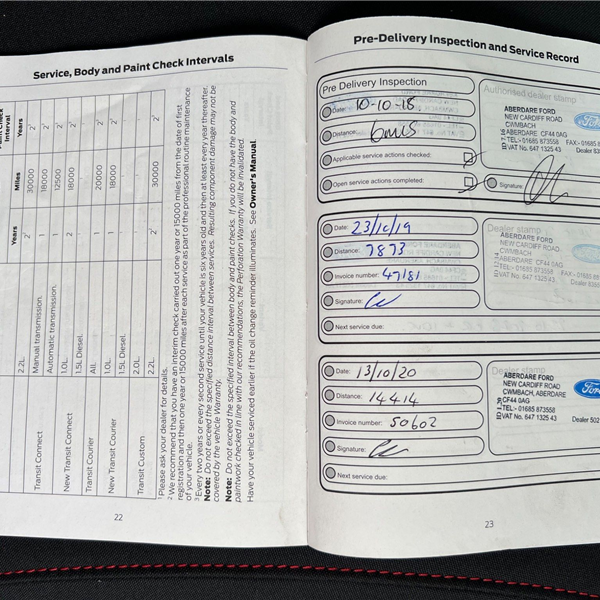 Service, Body and Paint Check Intervals
Interval
Years Miles Years
2.2L. 2² 30000 2²
Transit Connect Manual transmission. 1 18000 2²
Automatic transmission. 1 12500 2²
New Transit Connect 1.0L. 2 18000 2²
1.5L Diesel.
Transit Courier All. 1 20000 2²
New Transit Courier 1.0L. 1 18000 2²
1.5L Diesel.
Transit Custom 2.0L.
2.2L. 2² 30000 2²
¹ Please ask your dealer for details.
² We recommend that you have an interim check carried out one year or 15000 miles from the date of first
registration and then one year or 15000 miles after each service as part of the professional routine maintenance
of your vehicle.
³ Every two years or every second service until your vehicle is six years old and then at least every year thereafter.
Note: Do not exceed the specified distance interval between services. Resulting component damage may not be
covered by the vehicle Warranty.
Note: Do not exceed the specified interval between body and paint checks. If you do not have the body and
paintwork checked in line with our recommendations, the Perforation Warranty will be invalidated.
Have your vehicle serviced earlier if the oil change reminder illuminates. See Owner's Manual.
22
Pre-Delivery Inspection and Service Record
Pre Delivery Inspection
Date: 10-10-18
Distance: 6mls
Applicable service actions checked:
Open service actions completed:
Authorised dealer stamp
ABERDARE FORD
NEW CARDIFF ROAD
CWMBACH
ABERDARE CF44 0AG
TEL:- 01685 873558 FAX:- 01685 8
VAT No. 647 1325 43
Ford
Signature:
Date: 23/10/19
Distance: 7873
Invoice number: 47181
Signature:
Next service due:
Dealer stamp
ABERDARE FORD
NEW CARDIFF ROAD
CWMBACH
ABERDARE CF44 0AG
TEL:- 01685 873558 FAX:- 01685 8
VAT No. 647 1325 43
Date: 13/10/20
Distance: 14414
Invoice number: 50602
Signature:
Next service due:
Dealer stamp
ABERDARE FORD
NEW CARDIFF ROAD
CWMBACH, ABERDARE
CF44 0AG
TEL:- 01685 873558
VAT No. 647 1325 43 Dealer 502
Ford
23